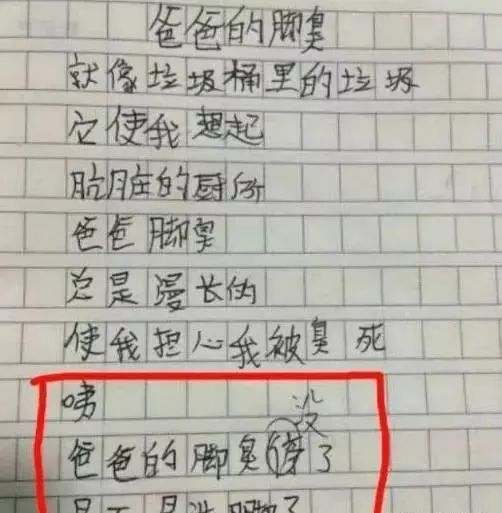 爸爸的脚臭
就像垃圾桶里的垃圾
它使我想起
肮脏的厨所
爸爸脚臭
总是漫长的
使我担心我被臭死
咦
没
爸爸的脚臭了
是不是洗脚了